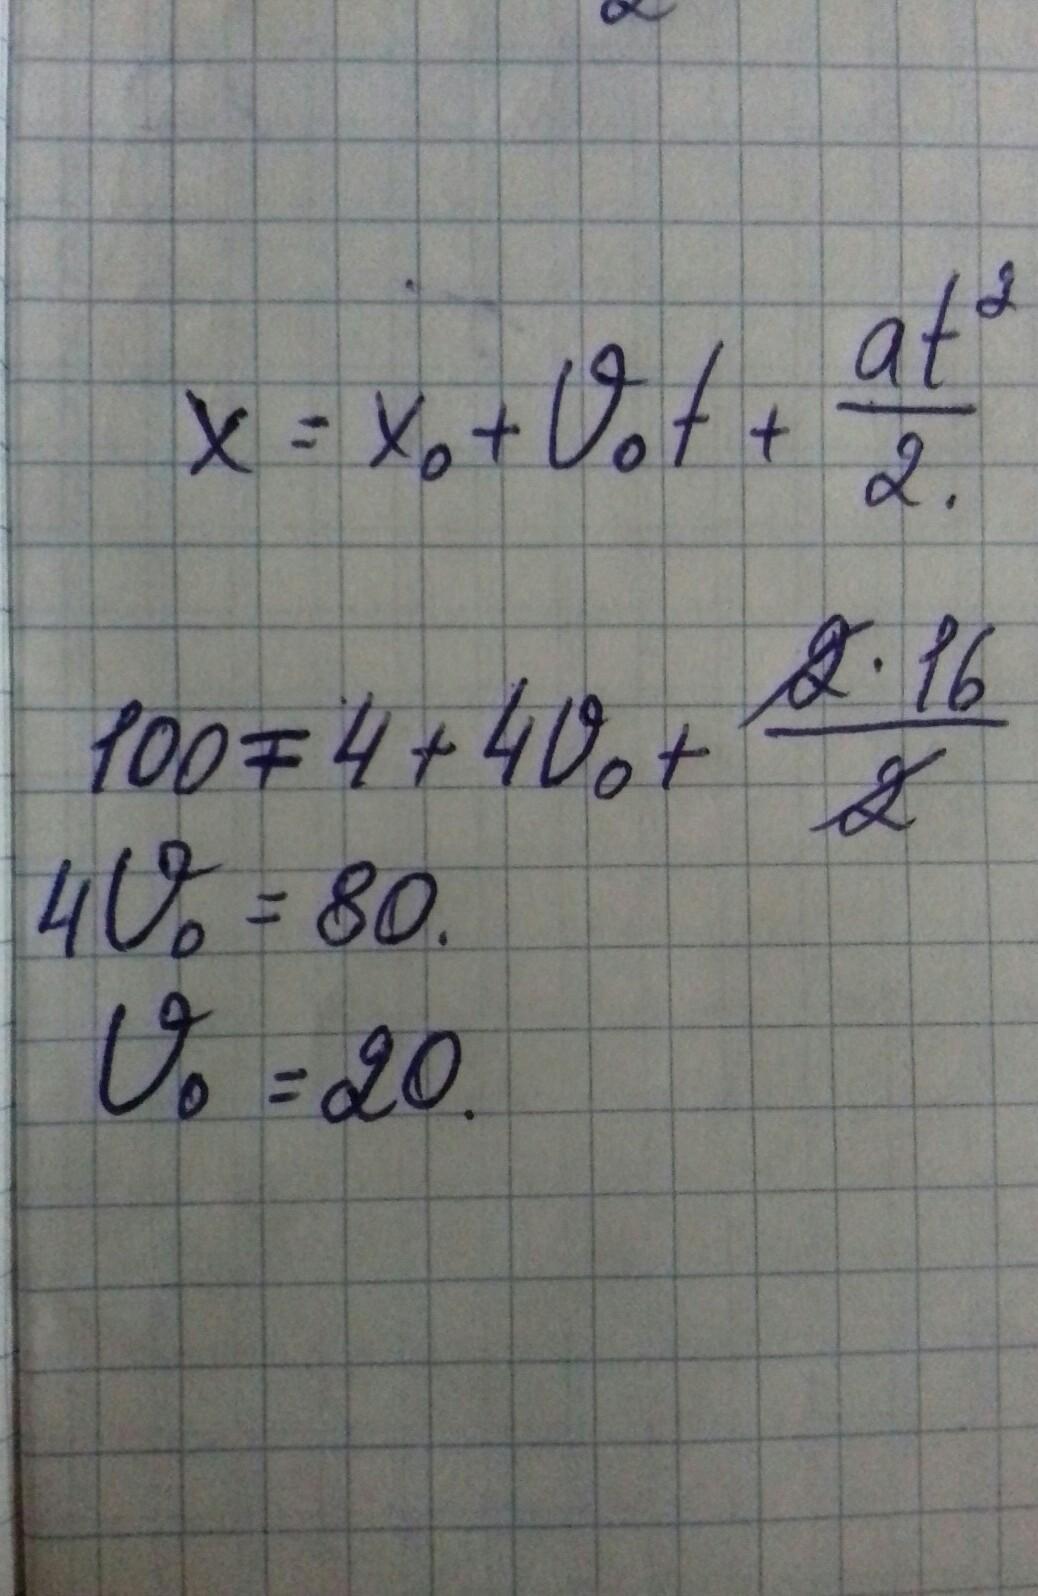 2
x = x₀ + υ₀t + at²/2.
100 = 4 + 4υ₀ + 2·16/2
4υ₀ = 80.
υ₀ = 20.